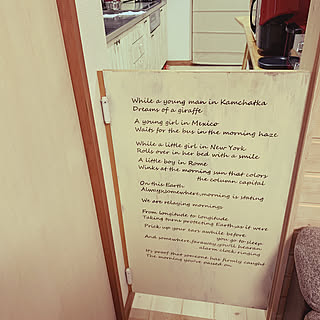 While a young man in Kamchatka
Dreams of a giraffe
A young girl in Mexico
Waits for the bus in the morning haze
While a little girl in New York
Rolls over in her bed with a smile
A little boy in Rome
Winks at the morning sun that colors
the column capital
On this Earth
Always,somewhere,morning is stating
We are relaying mornings
From longitude to longitude
Taking turns protecting Earth,as it were
Prick up your ears awhile before
you go to sleep
And somewhere,faraway,you'll hear an
alarm clock ringing
It's proof that someone has firmly caught
The morning you've passed on